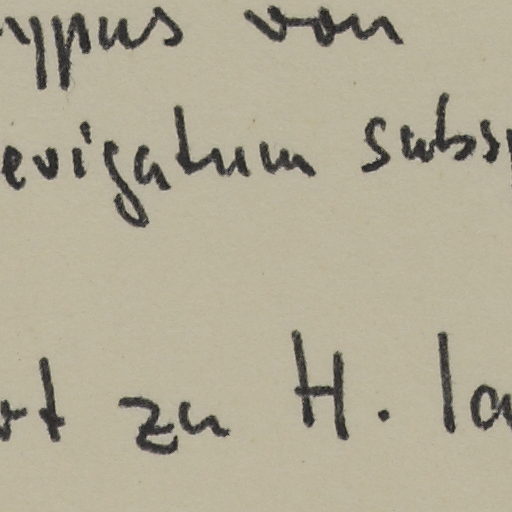 ypus von
evigatum subsp
rt zu H. la